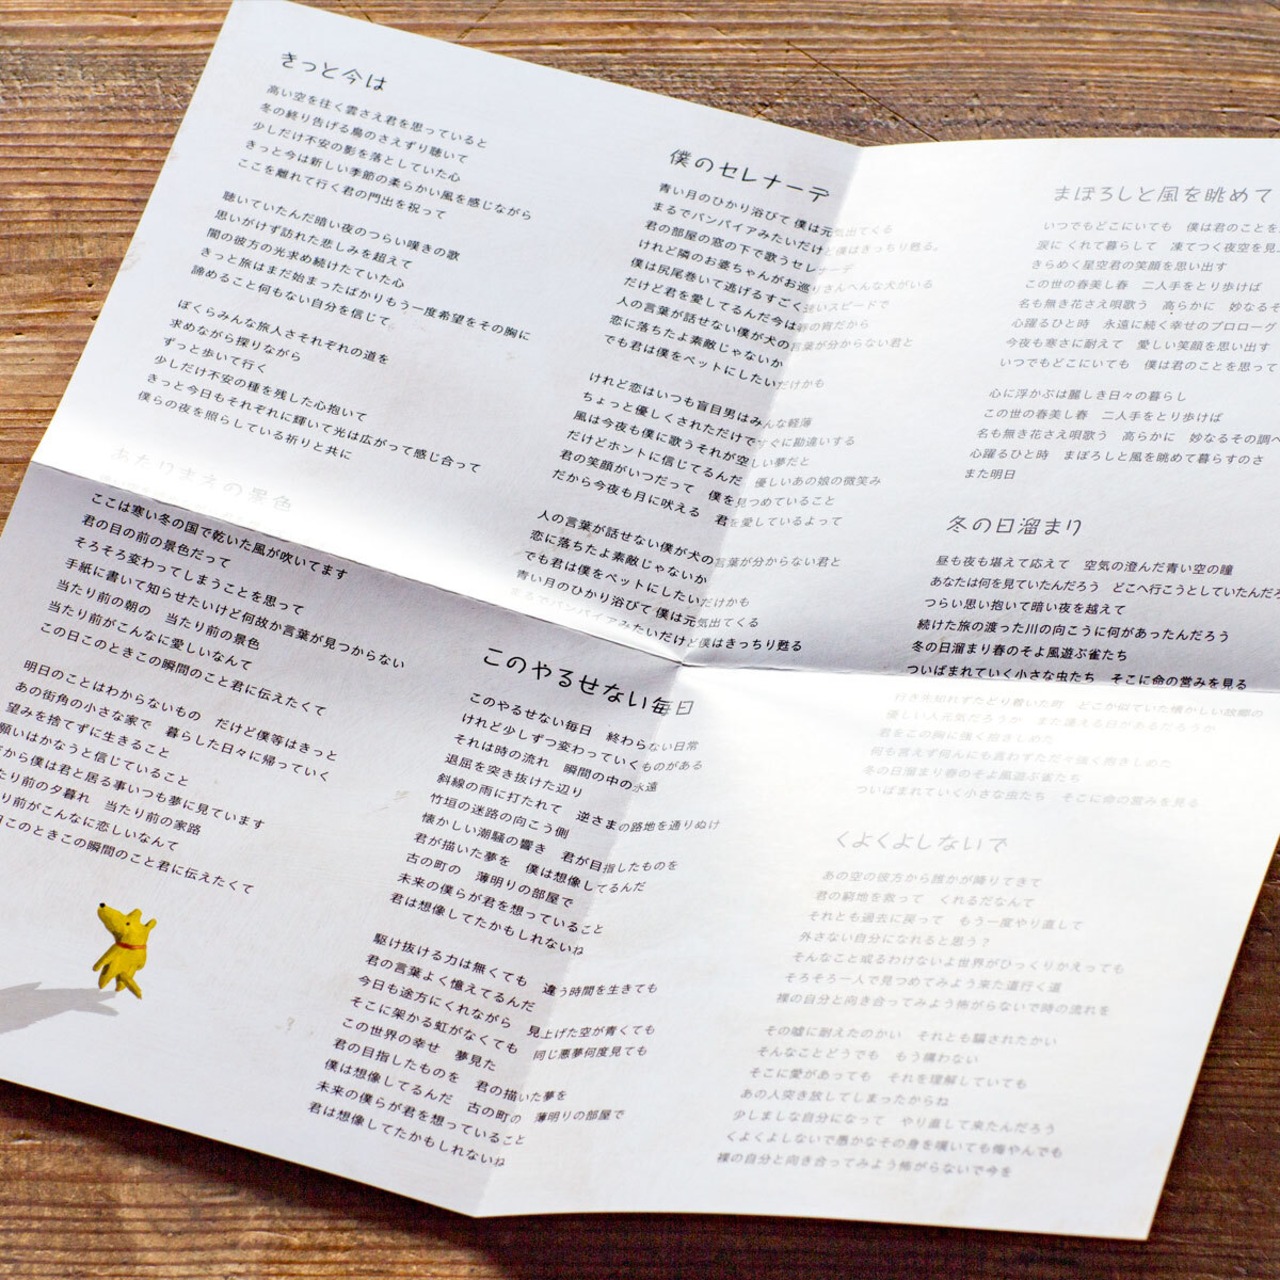 きっと今は
高い空を往く雲さえ君を思っていると
冬の終り告げる鳥のさえずり聴いて
少しだけ不安の影を落としていた心
きっと今は新しい季節の柔らかい風を感じながら
ここを離れて行く君の門出を祝って
聴いていたんだ暗い夜のつらい嘆きの歌
思いがけず訪れた悲しみを超えて
闇の彼方の光求め続けたていた心
きっと旅はまだ始まったばかりもう一度希望をその胸に
諦めること何もない自分を信じて
ぼくらみんな旅人さそれぞれの道を
求めながら探りながら
ずっと歩いて行く
少しだけ不安の種を残した心抱いて
きっと今日もそれぞれに輝いて光は広がって感じ合って
僕らの夜を照らしている祈りと共に
あたりまえの景色
ここは寒い冬の国で乾いた風が吹いてます
君の目の前の景色だって
そろそろ変わってしまうことを思って
手紙に書いて知らせたいけど何故か言葉が見つからない
当たり前の朝の　当たり前の景色
当たり前がこんなに愛しいなんて
この日このときこの瞬間のこと君に伝えたくて
明日のことはわからないもの　だけど僕等はきっと
あの街角の小さな家で　暮らした日々に帰っていく
望みを捨てずに生きること
願いはかなうと信じていること
から僕は君と居る事いつも夢に見ています
たり前の夕暮れ　当たり前の家路
り前がこんなに恋しいなんて
このときこの瞬間のこと君に伝えたくて
僕のセレナーデ
青い月のひかり浴びて 僕は元気出てくる
まるでバンパイアみたいだけど僕はきっちり甦る。
君の部屋の窓の下で歌うセレナーデ
けれど隣のお婆ちゃんがお巡りさんへんな犬がいる
僕は尻尾巻いて逃げるすごく速いスピードで
だけど君を愛してるんだ今は春の宵だから
人の言葉が話せない僕が犬の言葉が分からない君と
恋に落ちたよ素敵じゃないか
でも君は僕をペットにしたいだけかも
けれど恋はいつも盲目男はみんな軽薄
ちょっと優しくされただけですぐに勘違いする
風は今夜も僕に歌うそれが空しい夢だと
だけどホントに信じてるんだ　優しいあの娘の微笑み
君の笑顔がいつだって　僕を見つめていること
だから今夜も月に吠える　君を愛しているよって
人の言葉が話せない僕が犬の言葉が分からない君と
恋に落ちたよ素敵じゃないか
でも君は僕をペットにしたいだけかも
青い月のひかり浴びて 僕は元気出てくる
まるでバンパイアみたいだけど僕はきっちり甦る
このやるせない毎日
このやるせない毎日　終わらない日常
けれど少しずつ変わっていくものがある
それは時の流れ　瞬間の中の永遠
退屈を突き抜けた辺り
斜線の雨に打たれて　逆さまの路地を通りぬけ
竹垣の迷路の向こう側
懐かしい潮騒の響き　君が目指したものを
君が描いた夢を　僕は想像してるんだ
古の町の　薄明りの部屋で
未来の僕らが君を想っていること
君は想像してたかもしれないね
駆け抜ける力は無くても　違う時間を生きても
君の言葉よく憶えてるんだ
今日も途方にくれながら　見上げた空が青くても
そこに架かる虹がなくても　同じ悪夢何度見ても
この世界の幸せ　夢見た
君の目指したものを　君の描いた夢を
僕は想像してるんだ　古の町の　薄明りの部屋で
未来の僕らが君を想っていること
君は想像してたかもしれないね
まぼろしと風を眺めて
いつでもどこにいても　僕は君のことを
涙にくれて暮らして　凍てつく夜空を見
きらめく星空君の笑顔を思い出す
この世の春美し春　二人手をとり歩けば
名も無き花さえ唄歌う　高らかに　妙なるそ
心躍るひと時　永遠に続く幸せのプロローグ
今夜も寒さに耐えて　愛しい笑顔を思い出す
いつでもどこにいても　僕は君のことを思って
心に浮かぶは麗しき日々の暮らし
この世の春美し春　二人手をとり歩けば
名も無き花さえ唄歌う　高らかに　妙なるその調べ
心躍るひと時　まぼろしと風を眺めて暮らすのさ
また明日
冬の日溜まり
昼も夜も堪えて応えて　空気の澄んだ青い空の瞳
あなたは何を見ていたんだろう　どこへ行こうとしていたんだろ
つらい思い抱いて暗い夜を越えて
続けた旅の渡った川の向こうに何があったんだろう
冬の日溜まり春のそよ風遊ぶ雀たち
ついばまれていく小さな虫たち　そこに命の営みを見る
行き先知れずたどり着いた町　どこか似ていた懐かしい故郷の
優しい人元気だろうか　また逢える日があるだろうか
君をこの胸に強く抱きしめた
何も言えず何んにも言わずただ強く抱きしめた
冬の日溜まり春のそよ風遊ぶ雀たち
ついばまれていく小さな虫たち　そこに命の営みを見る
くよくよしないで
あの空の彼方から誰かが降りてきて
君の窮地を救って　くれるだなんて
それとも過去に戻って　もう一度やり直して
外さない自分になれると思う？
そんなこと或るわけないよ世界がひっくりかえっても
そろそろ一人で見つめてみよう来た道行く道
裸の自分と向き合ってみよう怖がらないで時の流れを
その嘘に耐えたのかい　それとも騙されたかい
そんなことどうでも　もう構わない
そこに愛があっても　それを理解していても
あの人突き放してしまったからね
少しましな自分になって　やり直して来たんだろう
くよくよしないで愚かなその身を嘆いても悔やんでも
裸の自分と向き合ってみよう怖がらないで今を